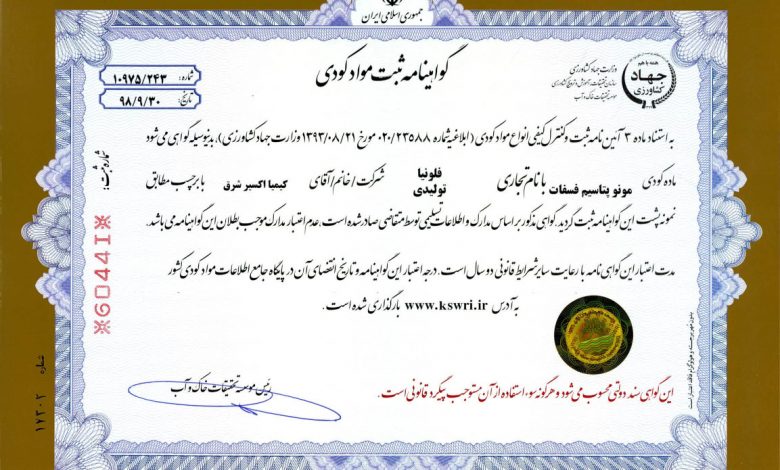 جمهوری اسلامی ایران
گواهینامه ثبت مواد کودی
شماره: ۱۰۹۷۵/۲۴۳
تاریخ: ۹۸/۹/۳۰
همه با هم
جهاد
کشاورزی
وزارت جهاد کشاورزی
سازمان تحقیقات، آموزش و ترویج کشاورزی
موسسه تحقیقات خاک و آب
به استناد ماده ۳ آئین نامه ثبت و کنترل کیفی انواع مواد کودی (ابلاغیه شماره ۰۲۰/۲۳۵۸۸ مورخ ۱۳۹۳/۰۸/۲۱ وزارت جهاد کشاورزی)، بدینوسیله گواهی می شود
ماده کودی مونو پتاسیم فسفات با نام تجاری فلونیا تولیدی شرکت/خانم/آقای کیمیا اکسیر شرق با برچسب مطابق
نمونه پشت این گواهینامه ثبت گردید. گواهی مذکور بر اساس مدارک و اطلاعات تسلیمی توسط متقاضی صادر شده است. عدم اعتبار مدارک موجب بطلان این گواهینامه می باشد.
مدت اعتبار این گواهی نامه با رعایت سایر شرایط قانونی دو سال است. درجه اعتبار این گواهینامه و تاریخ انقضای آن در پایگاه جامع اطلاعات مواد کودی کشور
به آدرس www.kswri.ir بارگذاری شده است.
رئیس موسسه تحقیقات خاک و آب
این گواهی سند دولتی محسوب می شود و هرگونه سوء استفاده از آن مستوجب پیگرد قانونی است.
شماره ثبت:
※60441※
شماره ۱۷۳۰۲
بدون مهر برجسته و هولوگرام فاقد اعتبار است